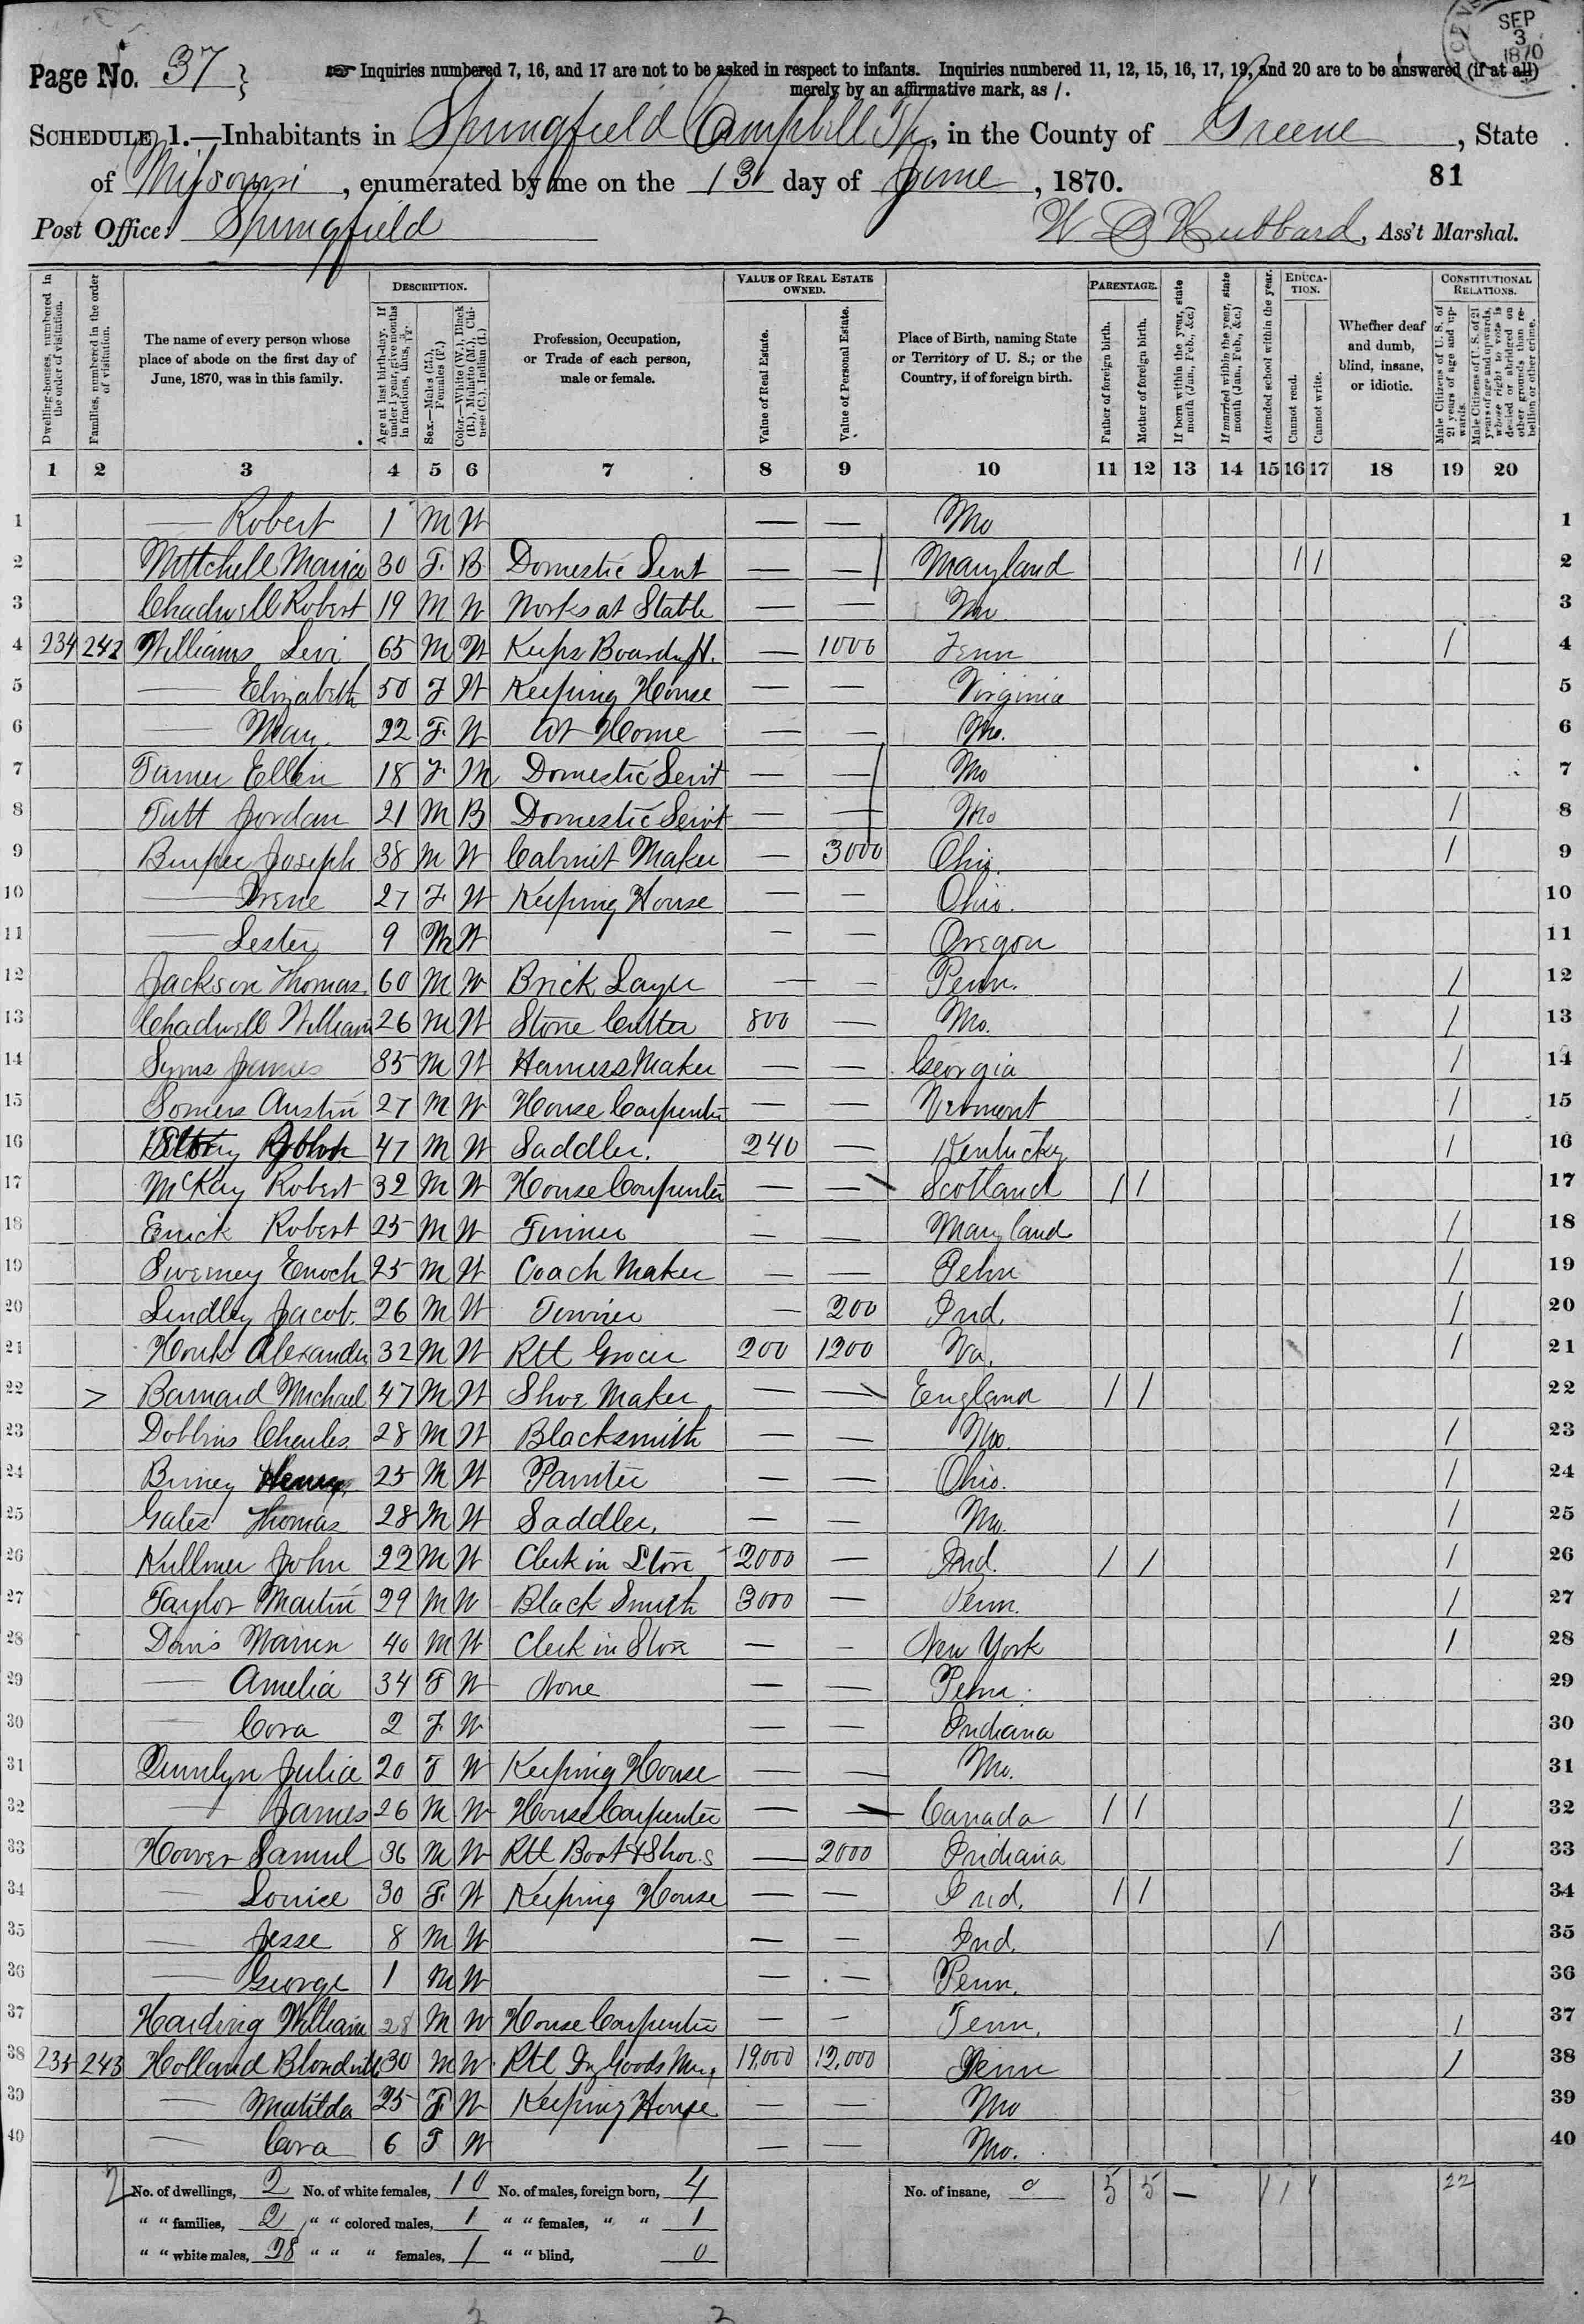 SEP
3
1870
Page No. 37 }
☞ Inquiries numbered 7, 16, and 17 are not to be asked in respect to infants. Inquiries numbered 11, 12, 15, 16, 17, 19, and 20 are to be answered (if at all)
merely by an affirmative mark, as /.
SCHEDULE 1.—Inhabitants in Springfield Campbell Tp, in the County of Greene, State
of Missouri, enumerated by me on the 13 day of June, 1870.
81
Post Office: Springfield
W D Hubbard, Ass't Marshal.
Dwelling-houses, numbered in the order of visitation.
Families, numbered in the order of visitation.
The name of every person whose place of abode on the first day of June, 1870, was in this family.
DESCRIPTION.
Age at last birth-day. If under 1 year, give months in fractions, thus, 3/12.
Sex.—Males (M.), Females (F.)
Color.—White (W.), Black (B.), Mulatto (M.), Chinese (C.), Indian (I.)
Profession, Occupation, or Trade of each person, male or female.
VALUE OF REAL ESTATE OWNED.
Value of Real Estate.
Value of Personal Estate.
Place of Birth, naming State or Territory of U. S.; or the Country, if of foreign birth.
PARENTAGE.
Father of foreign birth.
Mother of foreign birth.
If born within the year, state month (Jan., Feb., &c.)
If married within the year, state month (Jan., Feb., &c.)
Attended school within the year.
EDUCATION.
Cannot read.
Cannot write.
Whether deaf and dumb, blind, insane, or idiotic.
CONSTITUTIONAL RELATIONS.
Male Citizens of U. S. of 21 years of age and upwards.
Male Citizens of U. S. of 21 years of age and upwards, whose right to vote is denied or abridged on other grounds than rebellion or other crime.
1 2 3 4 5 6 7 8 9 10 11 12 13 14 15 16 17 18 19 20
1 — Robert 1 M W — — Mo 1
2 Mittchell Maria 30 F. B Domestic Sevt — — Maryland / / 2
3 Chadwell Robert 19 M W Works at Stable — — Mo 3
4 234 242 Williams Levi 65 M W Keeps Boardg H. — 1000 Tenn / 4
5 — Elizabeth 50 F W Keeping House — — Virginia 5
6 — May 22 F. W At Home — — Mo. 6
7 Turner Ellen 18 F M Domestic Sevt — — Mo 7
8 Tutt Jordan 21 M B Domestic Sevt — — Mo / 8
9 Joseph 38 M W Cabinit Maker — 3000 Ohio / 9
10 — Irene 27 F W Keeping House — — Ohio. 10
11 — Lester 9 M W — — Oregon 11
12 Jackson Thomas 60 M W Brick Layer — — Penn. / 12
13 Chadwell William 26 M W Stone Cutter 800 — Mo. / 13
14 Syms James 35 M W Harness Maker — — Georgia / 14
15 Somers Austin 27 M W House Carpenter — — Vermont / 15
16 47 M W Saddler. 240 — Kentucky / 16
17 McKay Robert 32 M W House Carpenter — — Scotland / / 17
18 Robert 25 M W Tinner — — Maryland / 18
19 Sweeney Enoch 25 M W Coach Maker — — Penn / 19
20 Lindley Jacob. 26 M W Tinner — 200 Ind. / 20
21 Alexander 32 M W Rtl Grocer 200 1200 Va. / 21
22 > Barnard Michael 47 M W Shoe Maker — — England / / 22
23 Dobbins Charles 28 M W Blacksmith — — Mo. / 23
24 Birney Henry 25 M W Painter — — Ohio. / 24
25 Gates Thomas 28 M W Saddler. — — Mo. / 25
26 Kullmer John 22 M W Clerk in Store 2000 — Ind. / / / 26
27 Taylor Martin 29 M W Black Smith 3000 — Penn. / 27
28 Davis Warren 40 M W Clerk in Store — — New York / 28
29 — Amelia 34 F W None — — Penn. 29
30 — Cora 2 F W — — Indiana 30
31 Julia 20 F W Keeping House — — Mo. 31
32 — James 26 M W House Carpenter — — Canada / / / 32
33 Hower Samul 36 M W Rtl Boot & Shoes — 2000 Indiana / 33
34 — Louise 30 F. W Keeping House — — Ind. / / 34
35 — Jesse 8 M W — — Ind. / 35
36 — George 1 M W — — Penn. 36
37 Harding William 28 M W House Carpenter — — Tenn. / 37
38 235 243 Holland Blondville 30 M W Rtl Dry Goods Mer 19,000 12,000 Tenn / 38
39 — Matilda 25 F. W Keeping House — — Mo 39
40 — Cora 6 F W — — Mo. 40
No. of dwellings, 2 No. of white females, 10 No. of males, foreign born, 4 No. of insane, 0 5 5 — / / / 22
" " families, 2 " " colored males, 1 " " females, " " 1
" " white males, 28 " " " females, 1 " " blind, 0